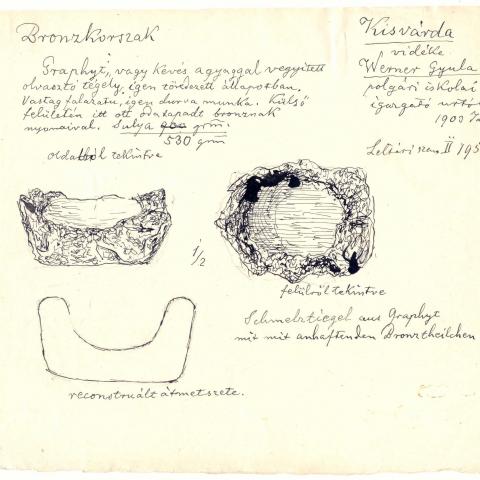 Bronzkorszak
Graphyt, vagy kevés agyaggal vegyített
olvasztó tégely, igen töredezett állapotban.
Vastag falazatu, igen durva munka. Külső
felületén itt ott odatapadt bronznak
nyomaival. Sulya grm.
530 grm
Kisvárda
vidéke.
Werner Gyula
polgári iskolai
igazgató
1900
Leltári szám II 195
oldalról tekintve
1/2
felülről tekintve
Schmelztiegel aus Graphyt
mit mit anhaftenden Bronztheilchen
reconstruált átmetszete.